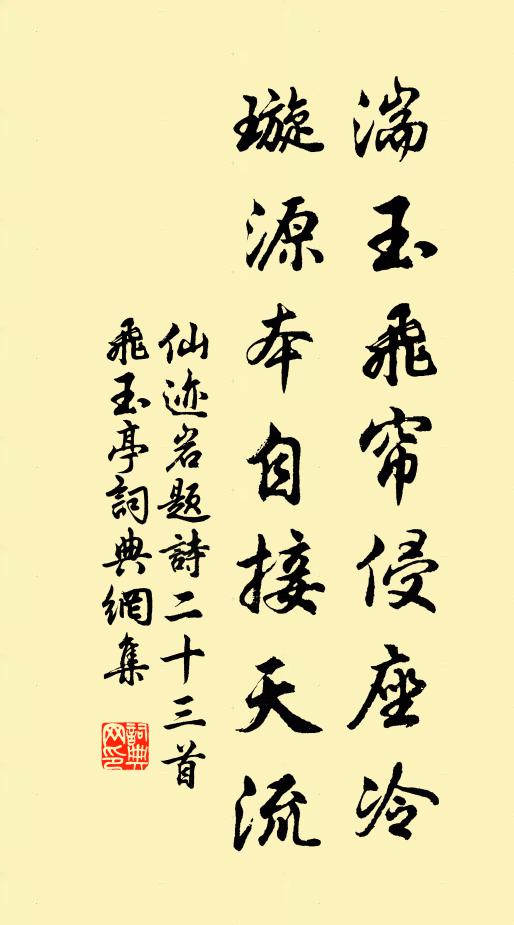 湍玉飛帘侵座冷
璇源本自接天流
仙迹岩题詩二十三首
飛玉亭詞典網集
詞典网印